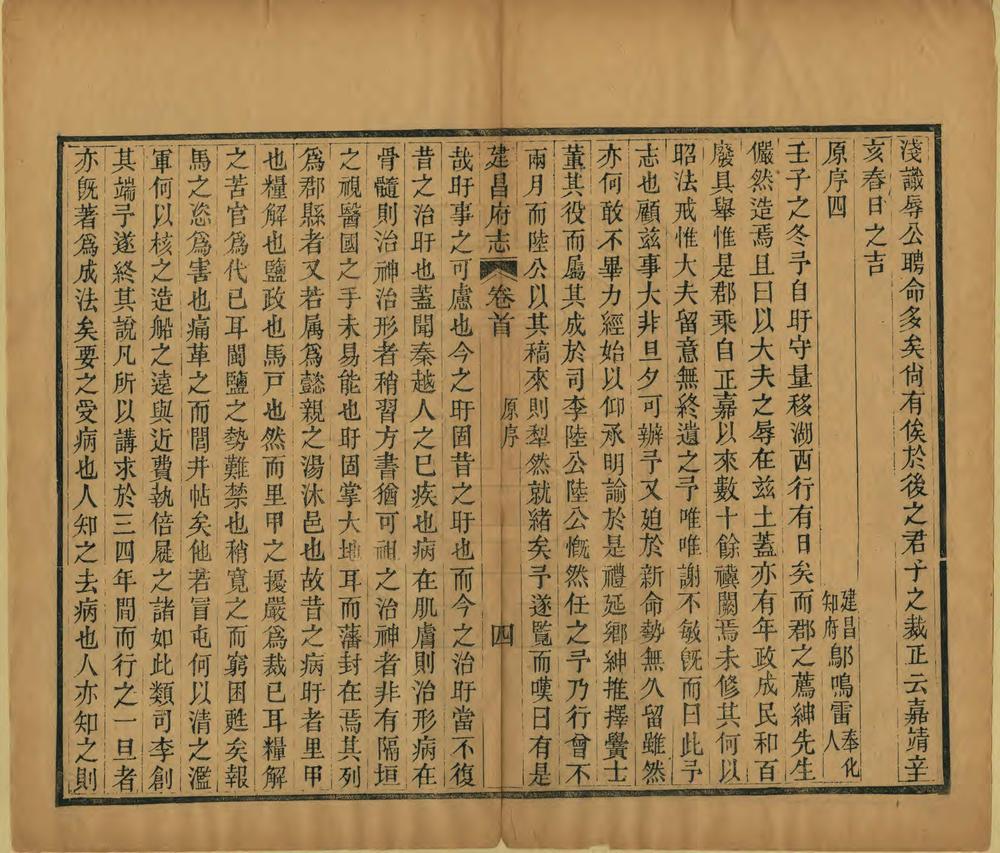 淺識辱公聘命多矣尙有俟於後之君子之裁正云嘉靖辛
亥春日之吉
原序四
建昌府知府鄔鳴雷奉化人
壬子之冬予自盱守量移湖西行有日矣而郡之薦紳先生
儼然造焉且曰以大夫之辱在兹土蓋亦有年政成民和百
廢具舉惟是郡乘自正嘉以來數十餘禩闕焉未修其何以
昭法戒惟大夫留意無終遺之予唯唯謝不敏旣而曰此予
志也顧兹事大非旦夕可辦予又廹於新命勢無久留雖然
亦何敢不畢力經始以仰承明諭於是禮延鄉紳推擇黌士
董其役而屬其成於司李陸公陸公慨然任之予乃行曾不
兩月而陸公以其稿來則犁然就緒矣予遂覽而嘆曰有是
建昌府志
卷首
原序
四
哉盱事之可慮也今之盱固昔之盱也而今之治盱當不復
昔之治盱也蓋聞秦越人之巳疾也病在肌膚則治形病在
骨髓則治神治形者稍習方書猶可祖之治神者非有隔垣
之視醫國之手未易能也盱固掌大地耳而藩封在焉其列
爲郡縣者又若属爲懿親之湯沐邑也故昔之病盱者里甲
也糧解也鹽政也馬戸也然而里甲之擾嚴爲裁已耳糧解
之苦官爲代已耳閩鹽之勢難禁也稍寬之而窮困甦矣報
馬之恣爲害也痛革之而閭井帖矣他若冒屯何以清之濫
軍何以核之造船之遠與近費執倍屣之諸如此類司李創
其端予遂終其說凡所以講求於三四年間而行之一旦者
亦旣著爲成法矣要之受病也人知之去病也人亦知之則